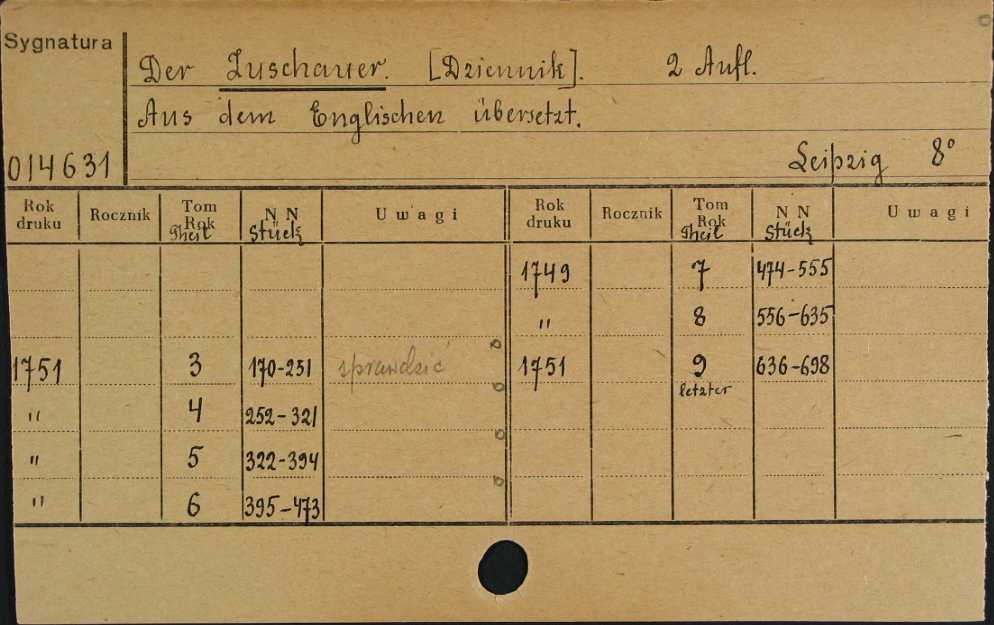 Sygnatura
Der Zuschauer. [Dziennik]. 2 Aufl.
Aus dem Englischen übersetzt.
014631
Leipzig 8°
Rok druku Rocznik Tom Rok Theil N N Stück Uwagi Rok druku Rocznik Tom Rok Theil N N Stück Uwagi
1749 7 474-555
" 8 556-635
1751 3 170-251 sprawdzić 1751 9 636-698
letzter
" 4 252-321
" 5 322-394
" 6 395-473